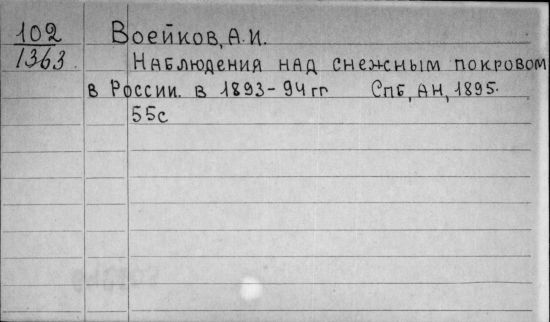 102
1363.
Воейков, А.И.
Наблюдения над снежным покровом
в России. в 1893-94 гг СПБ, АН, 1895.
55с